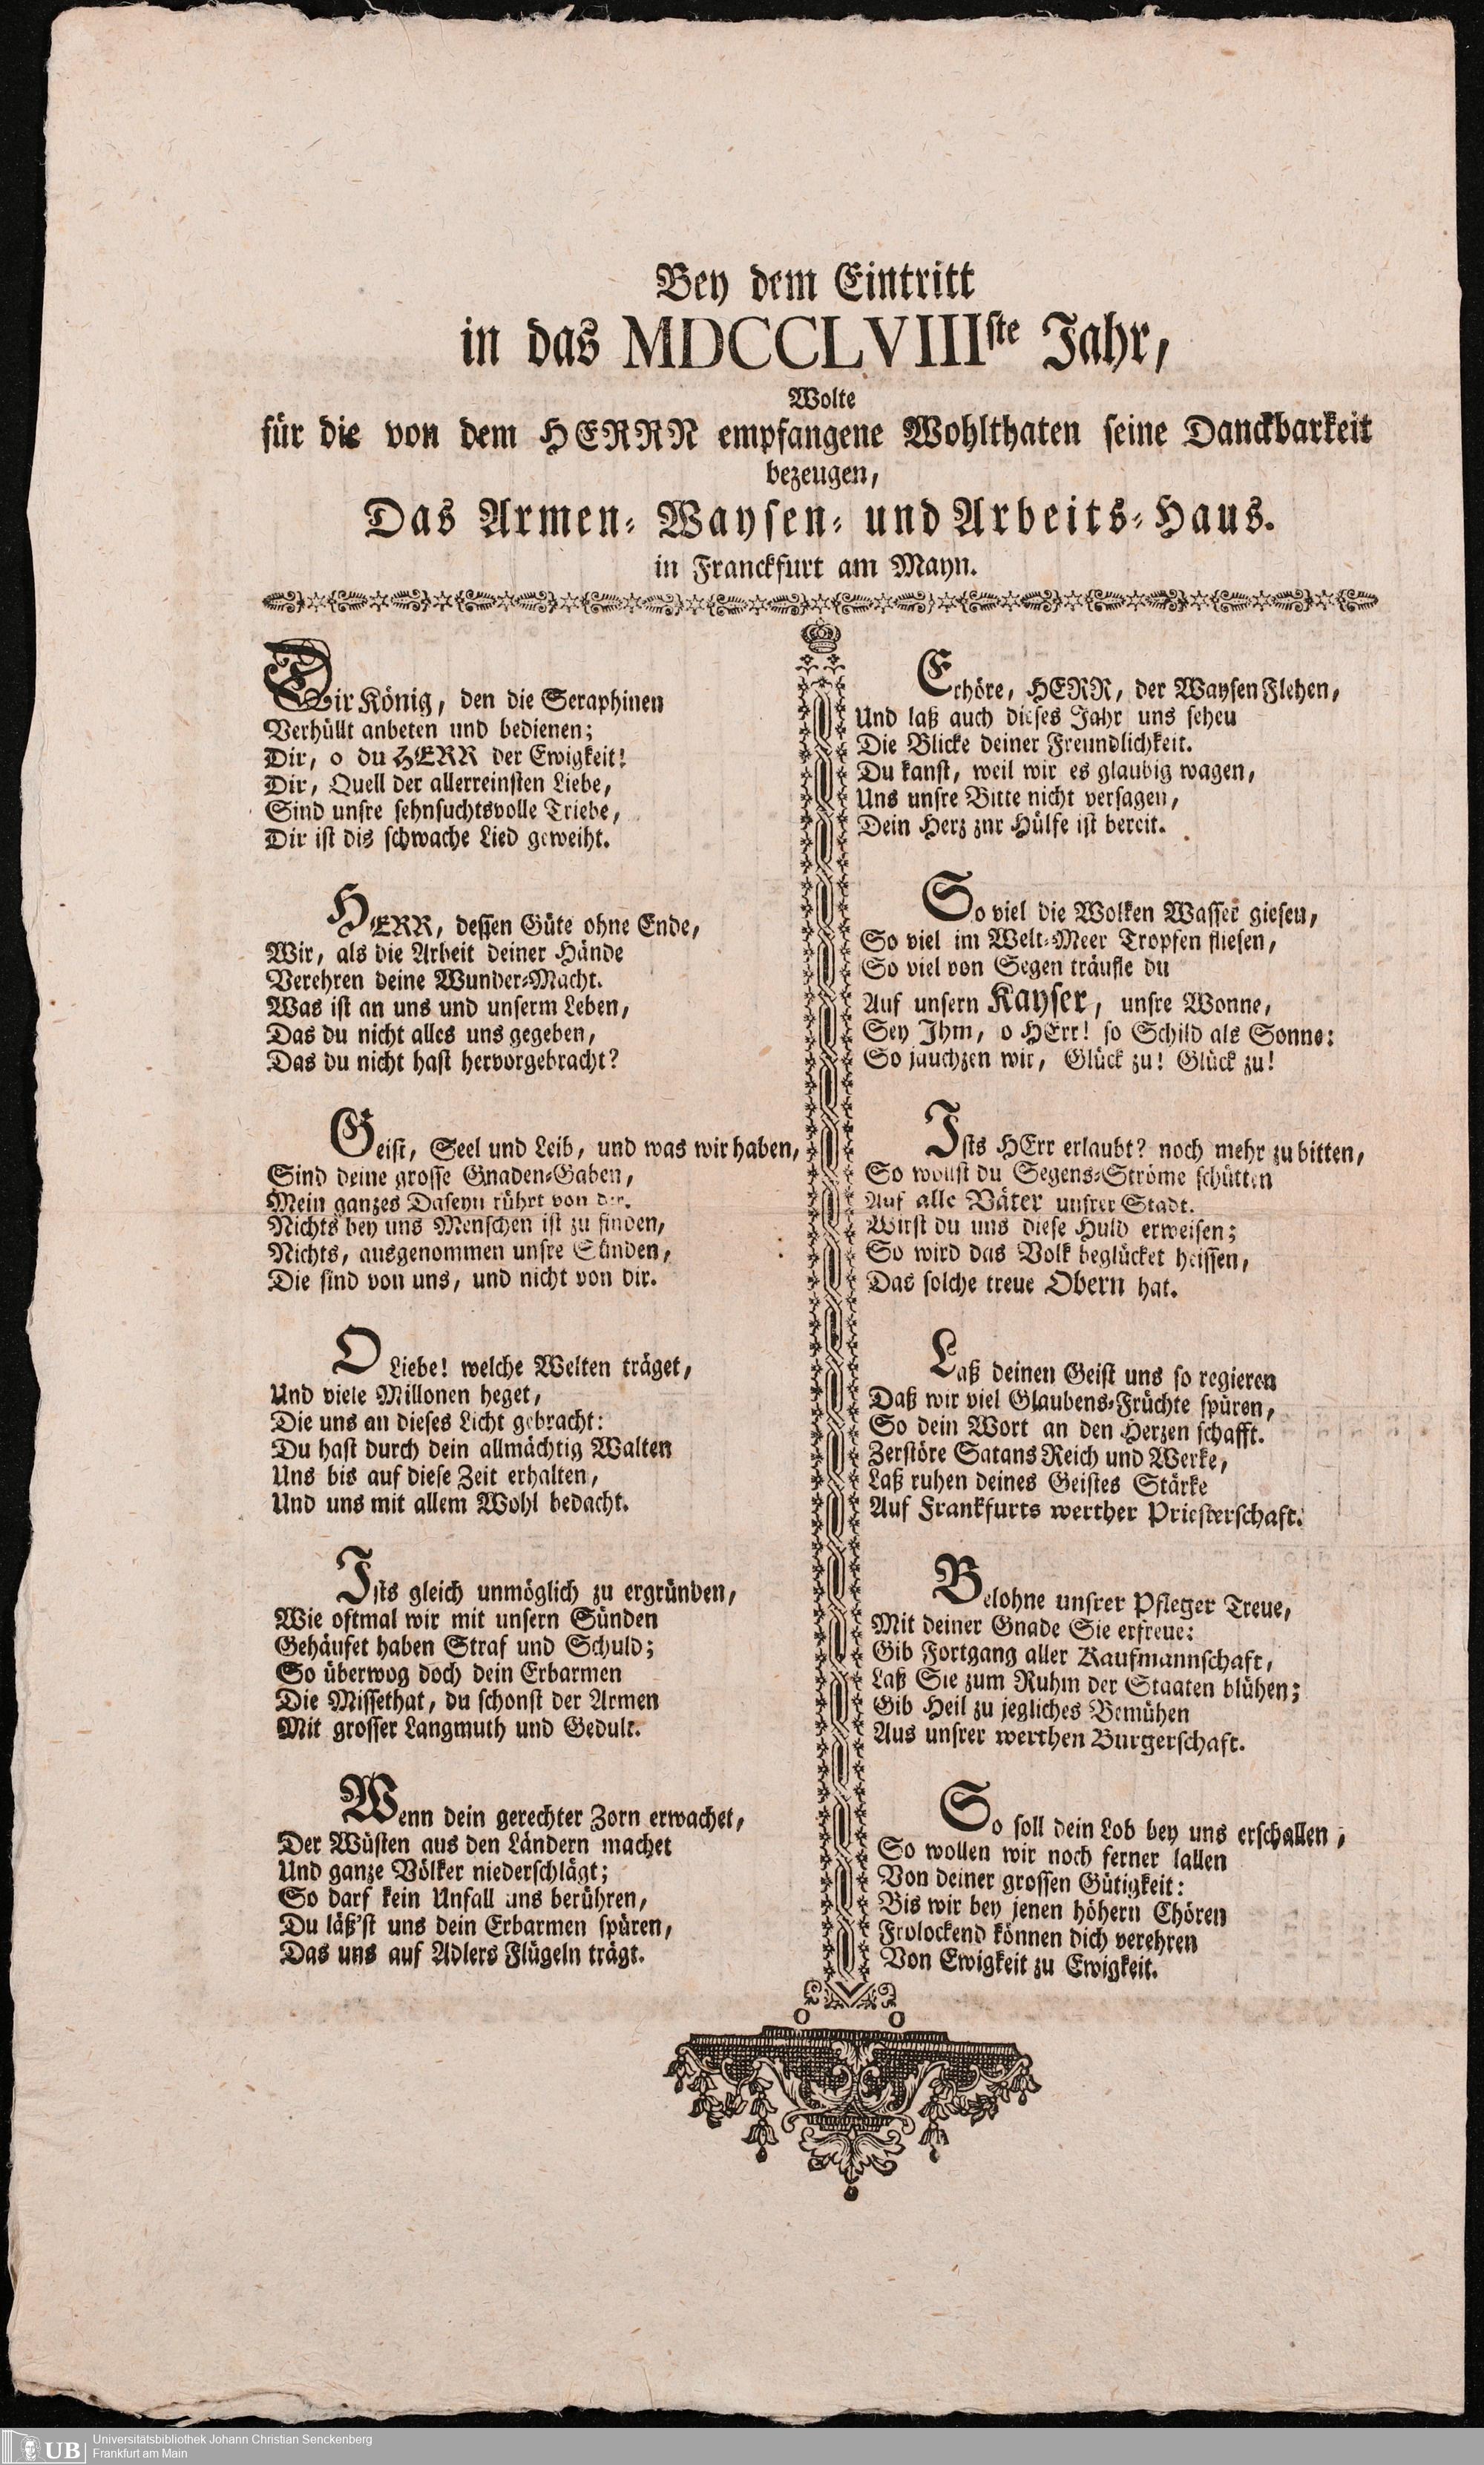 Bey dem Eintritt
in das MDCCLVIIIste Jahr,
Wolte
für die von dem HERRN empfangene Wohlthaten seine Danckbarkeit
bezeugen,
Das Armen- Waysen- und Arbeits-Haus.
in Franckfurt am Mayn.
Dir König, den die Seraphinen
Verhüllt anbeten und bedienen;
Dir, o du HERR der Ewigkeit!
Dir, Quell der allerreinsten Liebe,
Sind unsre sehnsuchtsvolle Triebe,
Dir ist dis schwache Lied geweiht.
HERR, dessen Güte ohne Ende,
Wir, als die Arbeit deiner Hände
Verehren deine Wunder-Macht.
Was ist an uns und unserm Leben,
Das du nicht alles uns gegeben,
Das du nicht hast hervorgebracht?
Geist, Seel und Leib, und was wir haben,
Sind deine grosse Gnaden-Gaben,
Mein ganzes Daseyn rührt von dir.
Nichts bey uns Menschen ist zu finden,
Nichts, ausgenommen unsre Sünden,
Die sind von uns, und nicht von dir.
O Liebe! welche Welten träget,
Und viele Millonen heget,
Die uns an dieses Licht gebracht:
Du hast durch dein allmächtig Walten
Uns bis auf diese Zeit erhalten,
Und uns mit allem Wohl bedacht.
Ists gleich unmöglich zu ergründen,
Wie oftmal wir mit unsern Sünden
Gehäufet haben Straf und Schuld;
So überwog doch dein Erbarmen
Die Missethat, du schonst der Armen
Mit grosser Langmuth und Gedult.
Wenn dein gerechter Zorn erwachet,
Der Wüsten aus den Ländern machet
Und ganze Völker niederschlägt;
So darf kein Unfall uns berühren,
Du läß'st uns dein Erbarmen spüren,
Das uns auf Adlers Flügeln trägt.
Erhöre, HERR, der Waysen Flehen,
Und laß auch dieses Jahr uns seheu
Die Blicke deiner Freundlichkeit.
Du kanst, weil wir es glaubig wagen,
Uns unsre Bitte nicht versagen,
Dein Herz znr Hülfe ist bereit.
So viel die Wolken Wasser giesen,
So viel im Welt-Meer Tropfen fliesen,
So viel von Segen träufle du
Auf unsern Kayser, unsre Wonne,
Sey Ihm, o HErr! so Schild als Sonne:
So jauchzen wir, Glück zu! Glück zu!
Ists HErr erlaubt? noch mehr zu bitten,
So wollst du Segens-Ströme schütten
Auf alle Väter unsrer Stadt.
Wirst du uns diese Huld erweisen;
So wird das Volk beglücket heissen,
Das solche treue Obern hat.
Laß deinen Geist uns so regieren
Daß wir viel Glaubens-Früchte spüren,
So dein Wort an den Herzen schafft.
Zerstöre Satans Reich und Werke,
Laß ruhen deines Geistes Stärke
Auf Frankfurts werther Priesterschaft.
Belohne unsrer Pfleger Treue,
Mit deiner Gnade Sie erfreue:
Gib Fortgang aller Kaufmannschaft,
Laß Sie zum Ruhm der Staaten blühen;
Gib Heil zu jegliches Bemühen
Aus unsrer werthen Burgerschaft.
So soll dein Lob bey uns erschallen,
So wollen wir noch ferner lallen
Von deiner grossen Gütigkeit:
Bis wir bey jenen höhern Chören
Frolockend können dich verehren
Von Ewigkeit zu Ewigkeit.
UB Universitätsbibliothek Johann Christian Senckenberg
Frankfurt am Main